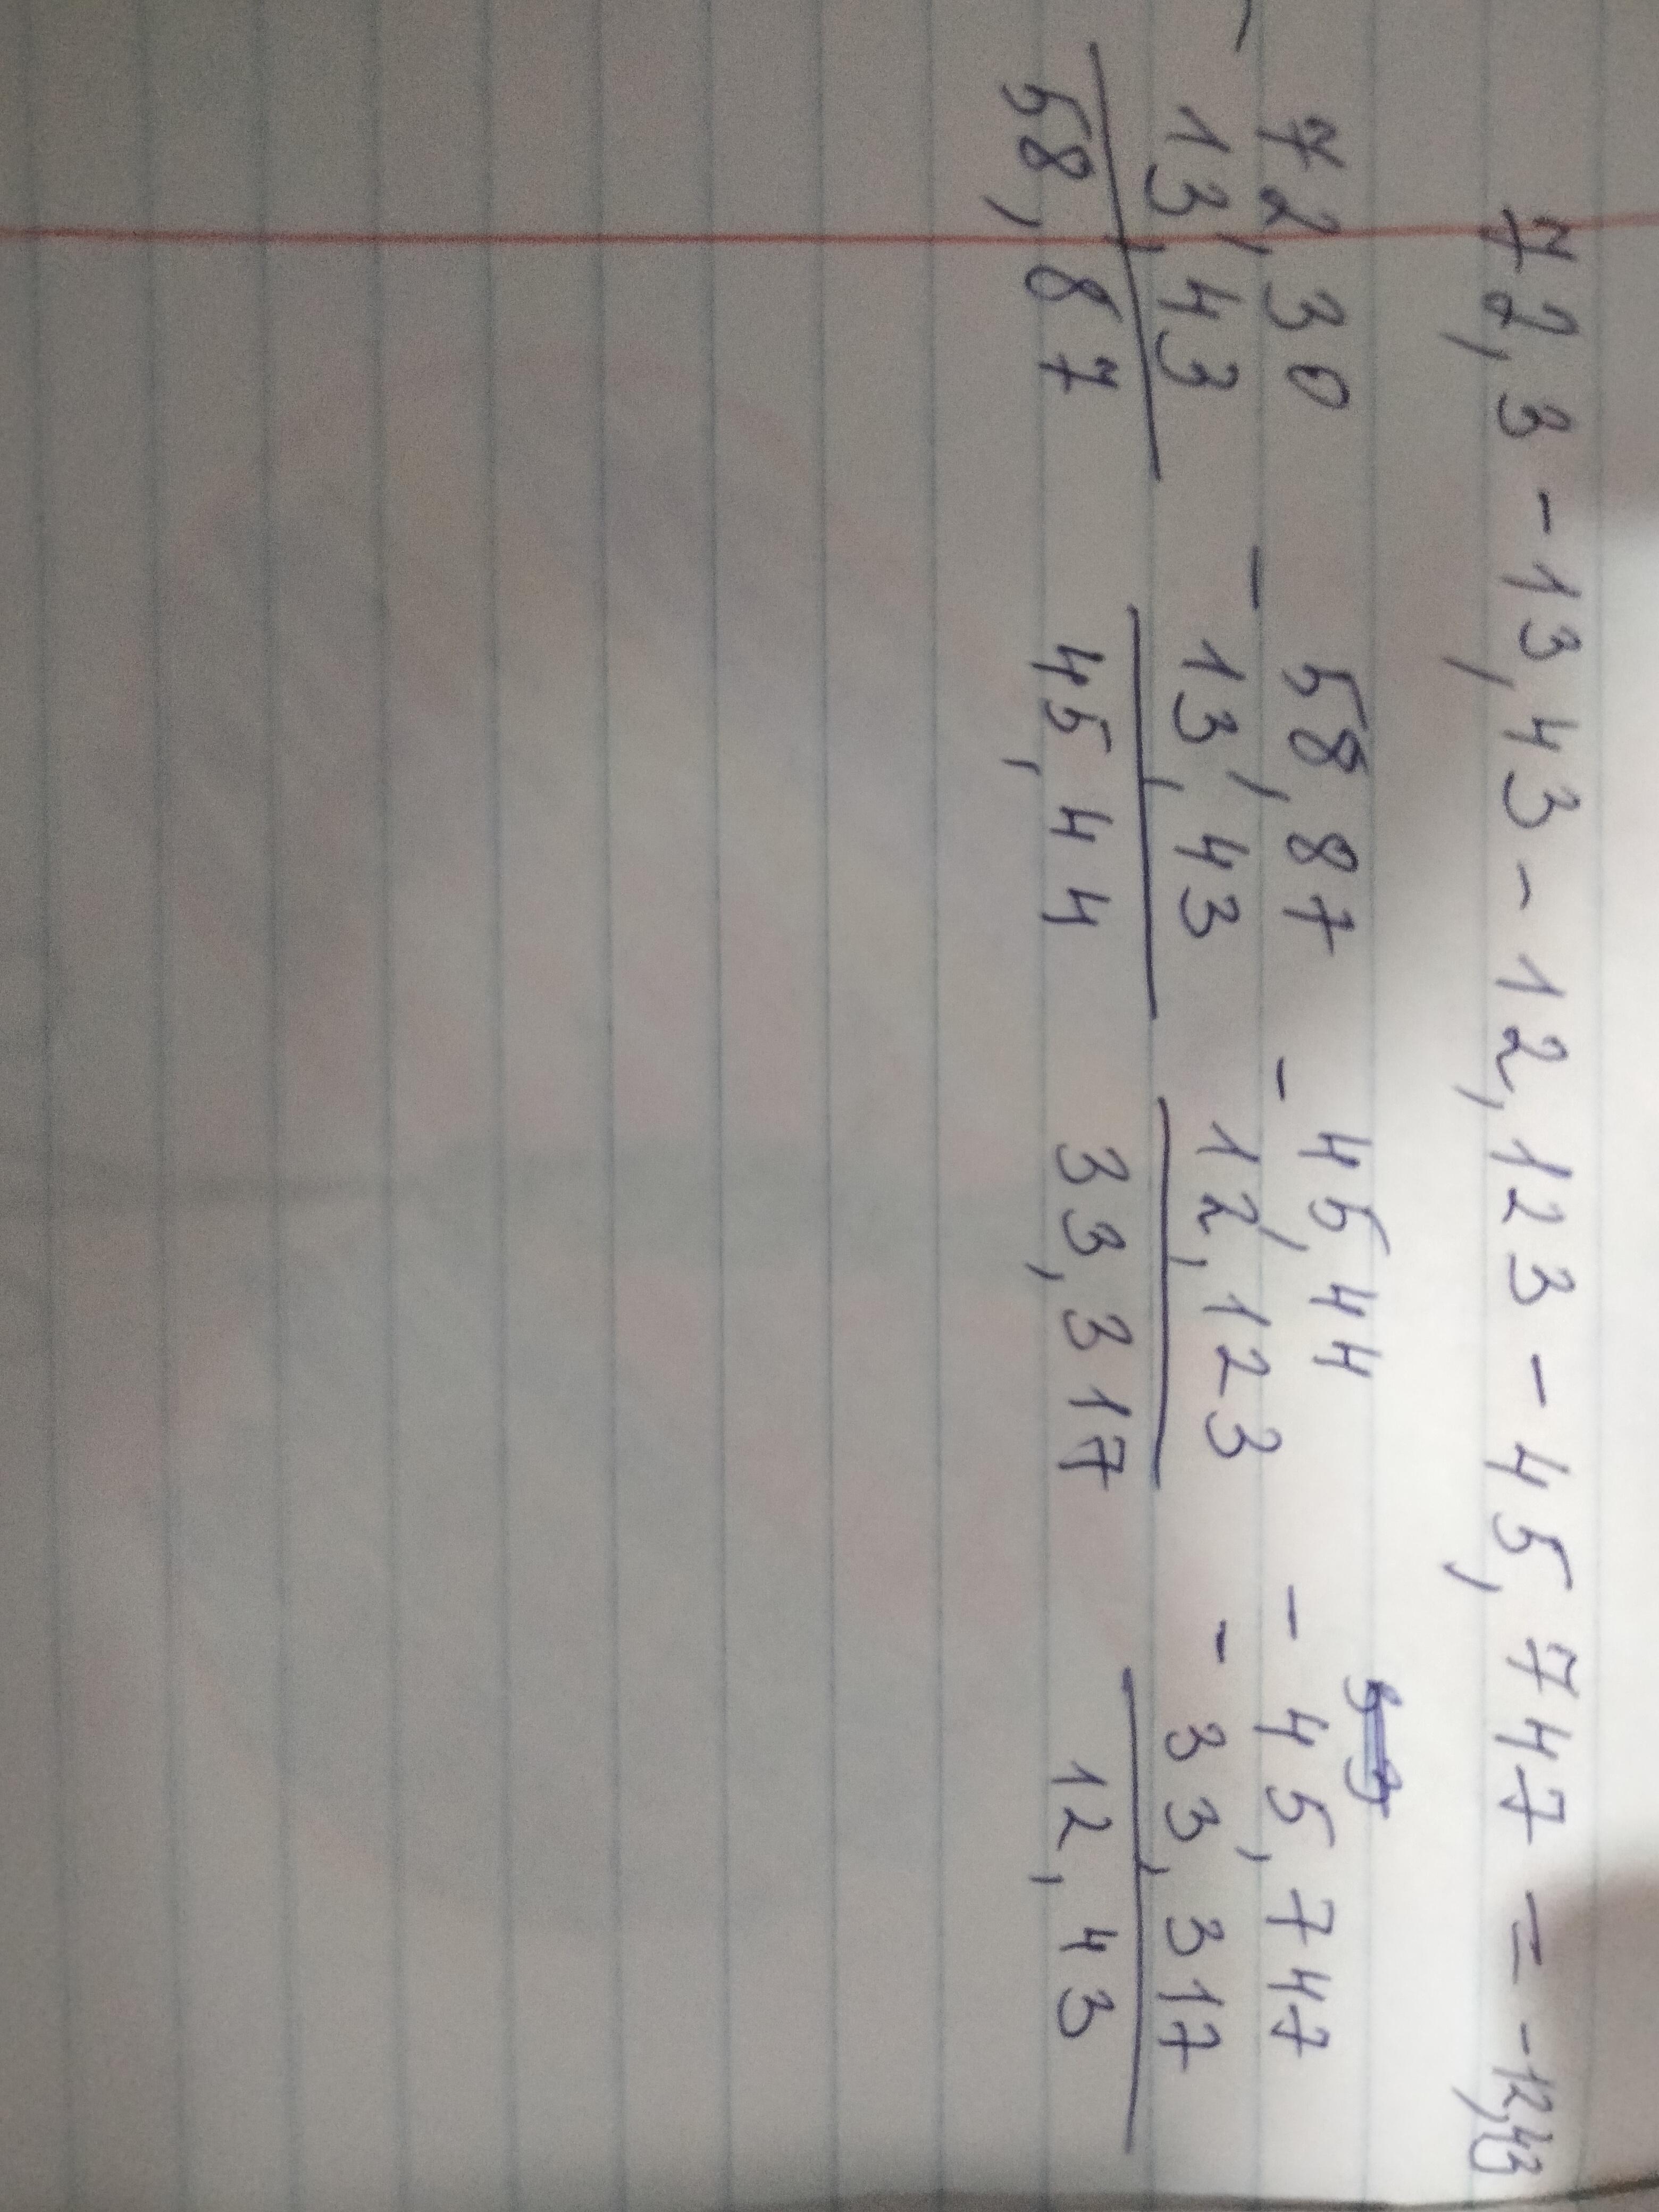 72,3 - 13,43 - 12,123 - 45,747 = -12,43
72,30 - 58,87 - 45,44 - 45,747
- 13,43 13,43 12,123 - 33,317
58,87 45,44 33,317 12,43